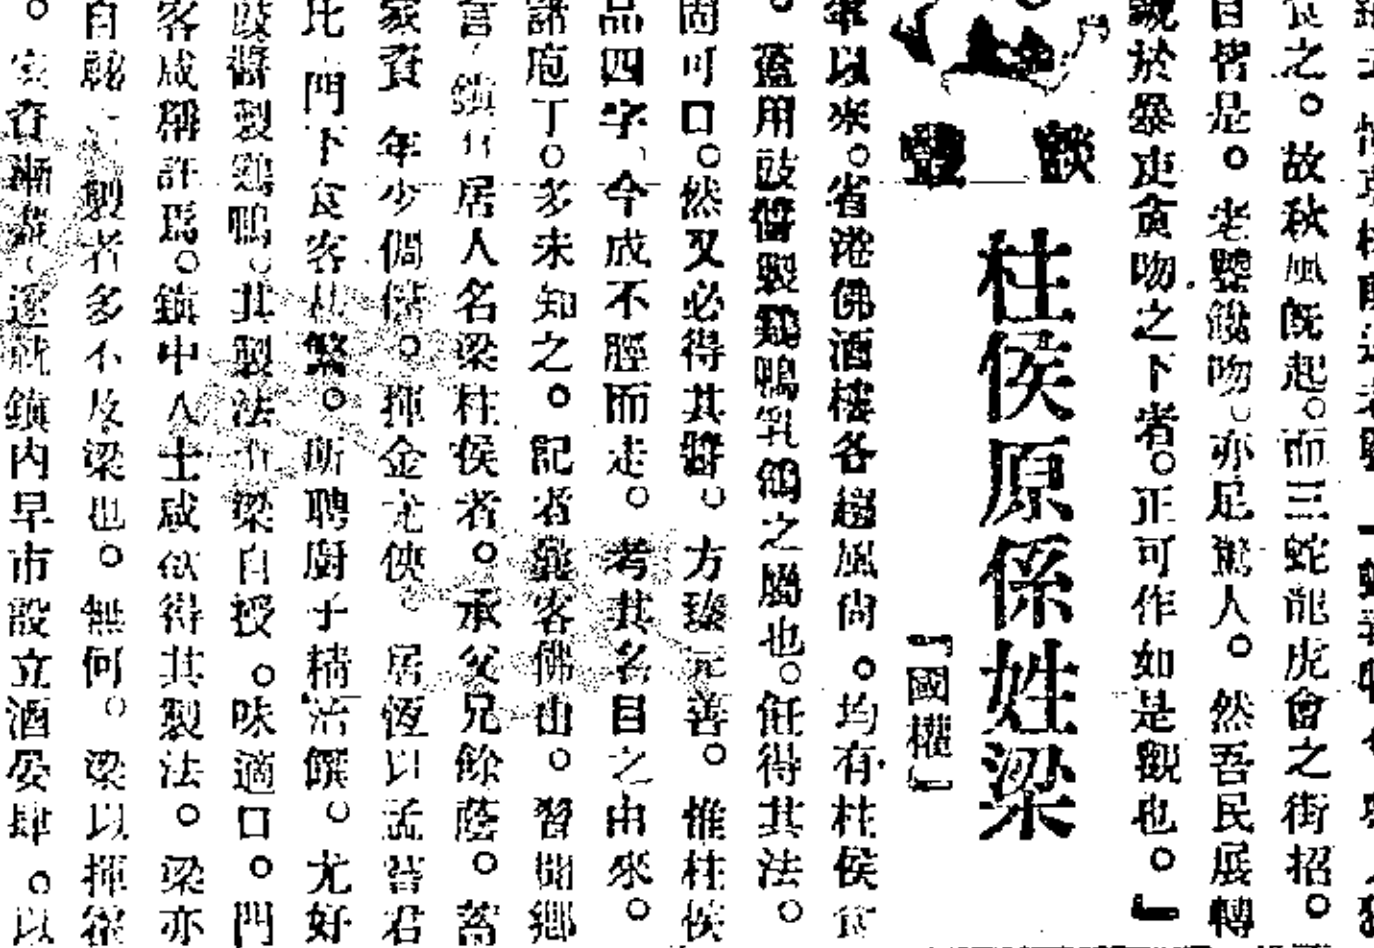 食之。故秋風既起。而三蛇龍虎會之街招。
目皆是。老饕饞吻。亦足驚人。然吾民展轉
於暴吏貪吻之下者。正可作如是觀也。』
談豐
柱侯原係姓梁
『國權』
年以來。省港佛酒樓各趨風尚。均有柱侯食
。蓋用豉醬製鷄鴨乳鴿之屬也。任得其法。
固可口。然又必得其醬。方臻完善。惟柱侯
品四字、今成不脛而走。考其名目之由來。
諸庖丁。多未知之。記者曩客佛山。習聞鄉
言、鎮有居人名梁柱侯者。承父兄餘蔭。蓄
家資 年少倜儻。揮金尤俠。居恆以孟嘗君
比 門下食客 繁。所聘廚子精治饌。尤好
豉醬製鷄鴨。其製法 梁自授。味適口。門
客咸稱許焉。鎮中人士咸欲得其製法。梁亦
自 製者多不及梁也。無何。梁以揮霍
。家資漸 、遂就鎮內早市設立酒晏肆。以